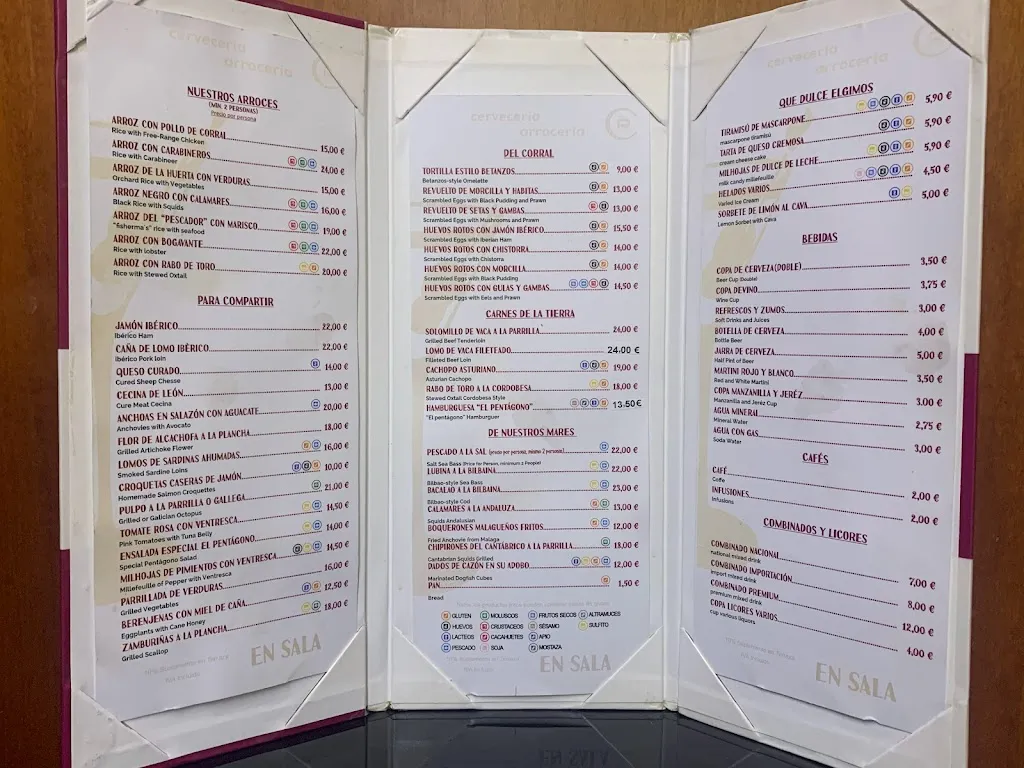 cervecería
arrocería
NUESTROS ARROCES
(MIN. 2 PERSONAS)
Precio por persona
ARROZ CON POLLO DE CORRAL 15,00 €
Rice with Free-Range Chicken
ARROZ CON CARABINEROS 24,00 €
Rice with Carabineer
ARROZ DE LA HUERTA CON VERDURAS 15,00 €
Orchard Rice with Vegetables
ARROZ NEGRO CON CALAMARES 16,00 €
Black Rice with Squids
ARROZ DEL "PESCADOR" CON MARISCO 19,00 €
"fisherma's" rice with seafood
ARROZ CON BOGAVANTE 22,00 €
Rice with lobster
ARROZ CON RABO DE TORO 20,00 €
Rice with Stewed Oxtail
PARA COMPARTIR
JAMÓN IBÉRICO 22,00 €
Ibérico Ham
CAÑA DE LOMO IBÉRICO 22,00 €
Ibérico Pork loin
QUESO CURADO 14,00 €
Cured Sheep Chesse
CECINA DE LEÓN 13,00 €
Cure Meat Cecina
ANCHOAS EN SALAZÓN CON AGUACATE 20,00 €
Anchovies with Avocato
FLOR DE ALCACHOFA A LA PLANCHA 18,00 €
Grilled Artichoke Flower
LOMOS DE SARDINAS AHUMADAS 16,00 €
Smoked Sardine Loins
CROQUETAS CASERAS DE JAMÓN 10,00 €
Homemade Salmon Croquettes
PULPO A LA PARRILLA O GALLEGA 21,00 €
Grilled or Galician Octopus
TOMATE ROSA CON VENTRESCA 14,50 €
Pink Tomatoes with Tuna Belly
ENSALADA ESPECIAL EL PENTÁGONO 14,00 €
Special Pentágono Salad
MILHOJAS DE PIMIENTOS CON VENTRESCA 14,50 €
Millefeuille of Pepper with Ventresca
PARRILLADA DE VERDURAS 16,00 €
Grilled Vegetables
BERENJENAS CON MIEL DE CAÑA 12,50 €
Eggplants with Cane Honey
ZAMBURIÑAS A LA PLANCHA 18,00 €
Grilled Scallop
10% Suplemento en Terraza
IVA incluido
EN SALA
cervecería
arrocería
DEL CORRAL
TORTILLA ESTILO BETANZOS 9,00 €
Betanzos-style Omelette
REVUELTO DE MORCILLA Y HABITAS 13,00 €
Scrambled Eggs with Black Pudding and Prawn
REVUELTO DE SETAS Y GAMBAS 13,00 €
Scrambled Eggs with Mushrooms and Prawn
HUEVOS ROTOS CON JAMÓN IBÉRICO 15,50 €
Scrambled Eggs with Iberian Ham
HUEVOS ROTOS CON CHISTORRA 14,00 €
Scrambled Eggs with Chistorra
HUEVOS ROTOS CON MORCILLA 14,00 €
Scrambled Eggs with Black Pudding
HUEVOS ROTOS CON GULAS Y GAMBAS 14,50 €
Scrambled Eggs with Eels and Prawn
CARNES DE LA TIERRA
SOLOMILLO DE VACA A LA PARRILLA 24,00 €
Grilled Beef Tenderloin
LOMO DE VACA FILETEADO 24,00 €
Filleted Beef Loin
CACHOPO ASTURIANO 19,00 €
Asturian Cachopo
RABO DE TORO A LA CORDOBESA 18,00 €
Stewed Oxtail Cordobesa Style
HAMBURGUESA "EL PENTÁGONO" 13,50 €
"El pentágono" Hamburguer
DE NUESTROS MARES
PESCADO A LA SAL (precio por persona, mínimo 2 personas) 22,00 €
Salt Sea Bass (Price for Person, minimum 2 People)
LUBINA A LA BILBAINA 22,00 €
Bilbao-style Sea Bass
BACALAO A LA BILBAINA 23,00 €
Bilbao-style Cod
CALAMARES A LA ANDALUZA 13,00 €
Squids Andalusian
BOQUERONES MALAGUEÑOS FRITOS 12,00 €
Fried Anchovie from Malaga
CHIPIRONES DEL CANTÁBRICO A LA PARRILLA 18,00 €
Cantabrian Squids Grilled
DADOS DE CAZÓN EN SU ADOBO 12,00 €
Marinated Dogfish Cubes
PAN 1,50 €
Bread
GLUTEN MOLUSCOS FRUTOS SECOS ALTRAMUCES
HUEVOS CRUSTACEOS SÉSAMO SULFITO
LACTEOS CACAHUETES APIO
PESCADO SOJA MOSTAZA
10% Suplemento en Terraza
IVA incluido
EN SALA
cervecería
arrocería
QUE DULCE ELGIMOS
TIRAMISÚ DE MASCARPONE 5,90 €
mascarpone tiramisú
TARTA DE QUESO CREMOSA 5,90 €
cream cheese cake
MILHOJAS DE DULCE DE LECHE 5,90 €
milk candy millefeuille
HELADOS VARIOS 4,50 €
Varied Ice Cream
SORBETE DE LIMÓN AL CAVA 5,00 €
Lemon Sorbet with Cava
BEBIDAS
COPA DE CERVEZA(DOBLE) 3,50 €
Beer Cup (Double)
COPA DEVINO 3,75 €
Wine Cup
REFRESCOS Y ZUMOS 3,00 €
Soft Drinks and Juices
BOTELLA DE CERVEZA 4,00 €
Bottle Beer
JARRA DE CERVEZA 5,00 €
Half Pint of Beer
MARTINI ROJO Y BLANCO 3,50 €
Red and White Martini
COPA MANZANILLA Y JERÉZ 3.00 €
Manzanilla and Jeréz Cup
AGUA MINERAL 2,75 €
Mineral Water
AGUA CON GAS 3,00 €
Soda Water
CAFÉS
CAFÉ 2,00 €
Coffe
INFUSIONES 2,00 €
Infusions
COMBINADOS Y LICORES
COMBINADO NACIONAL 7,00 €
national mixed drink
COMBINADO IMPORTACIÓN 8,00 €
import mixed drink
COMBINADO PREMIUM 12,00 €
premium mixed drink
COPA LICORES VARIOS 4,00 €
cup various liquors
10% Suplemento en Terraza
IVA incluido
EN SALA